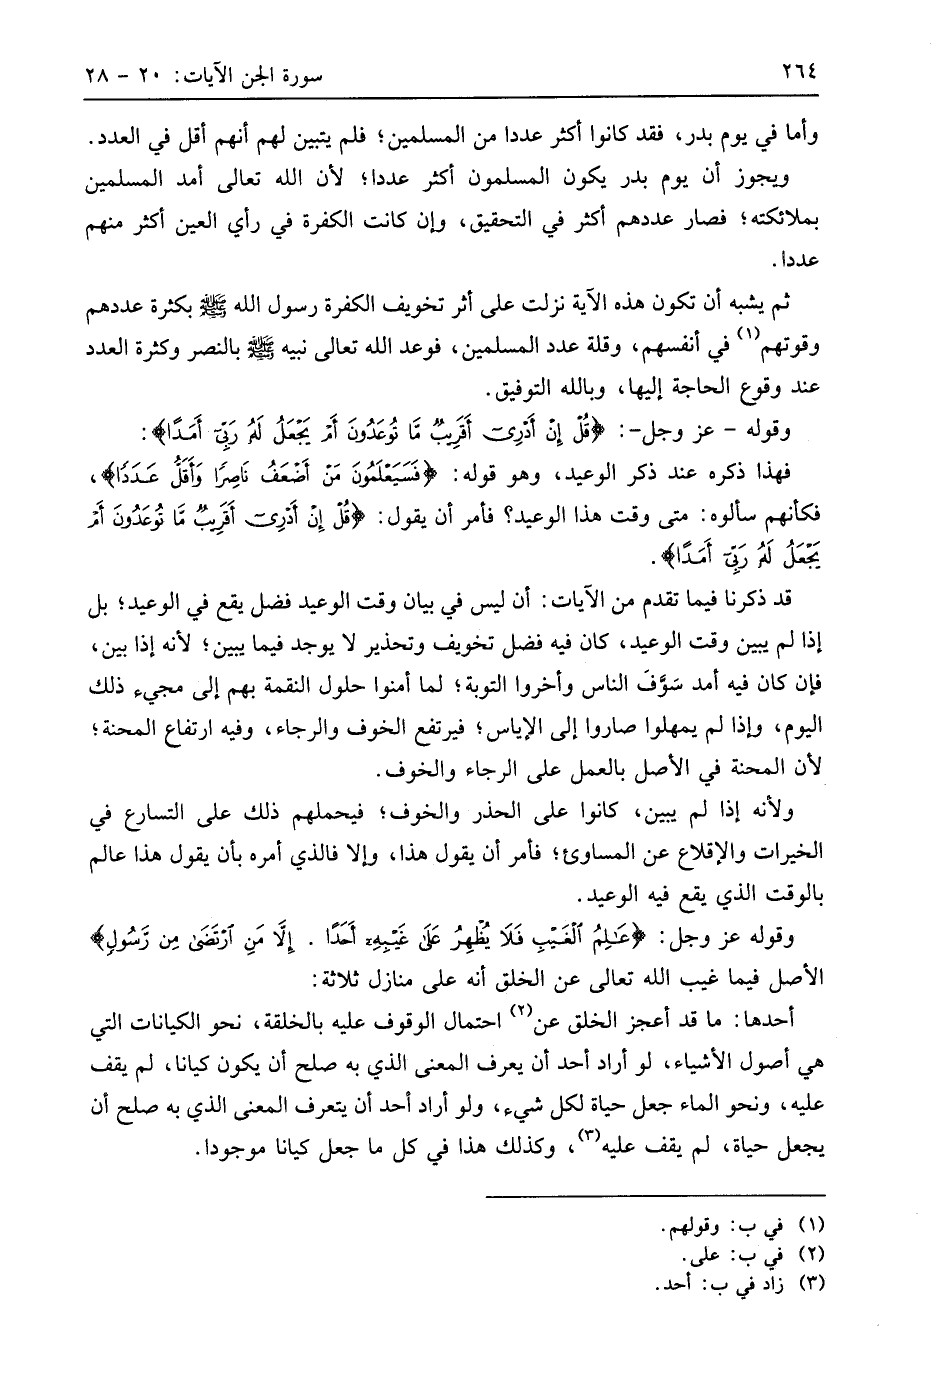 ٢٦٤
سورة الجن الآيات: ٢٠ - ٢٨
وأما في يوم بدر، فقد كانوا أكثر عددا من المسلمين؛ فلم يتبين لهم أنهم أقل في العدد.
ويجوز أن يوم بدر يكون المسلمون أكثر عددا؛ لأن الله تعالى أمد المسلمين
بملائكته؛ فصار عددهم أكثر في التحقيق، وإن كانت الكفرة في رأي العين أكثر منهم
عددا.
ثم يشبه أن تكون هذه الآية نزلت على أثر تخويف الكفرة رسول الله ﷺ بكثرة عددهم
وقوتهم(١) في أنفسهم، وقلة عدد المسلمين، فوعد الله تعالى نبيه ﷺ بالنصر وكثرة العدد
عند وقوع الحاجة إليها، وبالله التوفيق.
وقوله - عز وجل-: ﴿قُلْ إِنْ أَدْرِيٓ أَقَرِيبٌ مَّا تُوعَدُونَ أَمْ يَجْعَلُ لَهُۥ رَبِّيٓ أَمَدًا﴾:
فهذا ذكره عند ذكر الوعيد، وهو قوله: ﴿فَسَيَعْلَمُونَ مَنْ أَضْعَفُ نَاصِرًا وَأَقَلُّ عَدَدًا﴾،
فكأنهم سألوه: متى وقت هذا الوعيد؟ فأمر أن يقول: ﴿قُلْ إِنْ أَدْرِيٓ أَقَرِيبٌ مَّا تُوعَدُونَ أَمْ
يَجْعَلُ لَهُۥ رَبِّيٓ أَمَدًا﴾.
قد ذكرنا فيما تقدم من الآيات: أن ليس في بيان وقت الوعيد فضل يقع في الوعيد؛ بل
إذا لم يبين وقت الوعيد، كان فيه فضل تخويف وتحذير لا يوجد فيما يبين؛ لأنه إذا بين،
فإن كان فيه أمد سَوَّفَ الناس وأخروا التوبة؛ لما أمنوا حلول النقمة بهم إلى مجيء ذلك
اليوم، وإذا لم يمهلوا صاروا إلى الإياس؛ فيرتفع الخوف والرجاء، وفيه ارتفاع المحنة؛
لأن المحنة في الأصل بالعمل على الرجاء والخوف.
ولأنه إذا لم يبين، كانوا على الحذر والخوف؛ فيحملهم ذلك على التسارع في
الخيرات والإقلاع عن المساوئ؛ فأمر أن يقول هذا، وإلا فالذي أمره بأن يقول هذا عالم
بالوقت الذي يقع فيه الوعيد.
وقوله عز وجل: ﴿عَٰلِمُ ٱلْغَيْبِ فَلَا يُظْهِرُ عَلَىٰ غَيْبِهِۦٓ أَحَدًا . إِلَّا مَنِ ٱرْتَضَىٰ مِن رَّسُولٍ﴾
الأصل فيما غيب الله تعالى عن الخلق أنه على منازل ثلاثة:
أحدها: ما قد أعجز الخلق عن(٢) احتمال الوقوف عليه بالخلقة، نحو الكيانات التي
هي أصول الأشياء، لو أراد أحد أن يعرف المعنى الذي به صلح أن يكون كيانا، لم يقف
عليه، ونحو الماء جعل حياة لكل شيء، ولو أراد أحد أن يتعرف المعنى الذي به صلح أن
يجعل حياة، لم يقف عليه(٣)، وكذلك هذا في كل ما جعل كيانا موجودا.
(١) في ب: وقولهم.
(٢) في ب: على.
(٣) زاد في ب: أحد.